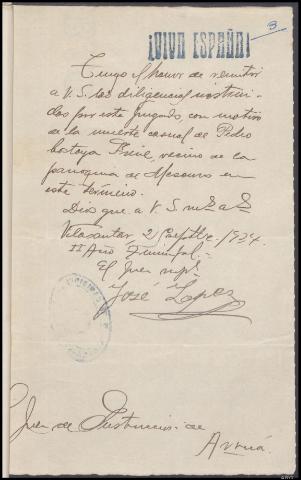 ¡VIVA ESPAÑA!
3
Tengo el honor de remitir
a V. S. las diligencias instrui-
das por este Juzgado con motivo
de la muerte casual de Pedro
vecino de la
parroquia de Mesouro en
este término.
Dios gue. a V. S. ms. as.
Vilasantar 2
II Año Triunfal.
El Juez mpl.
José Lopez
Juez de Instrucción de
Arzuá.